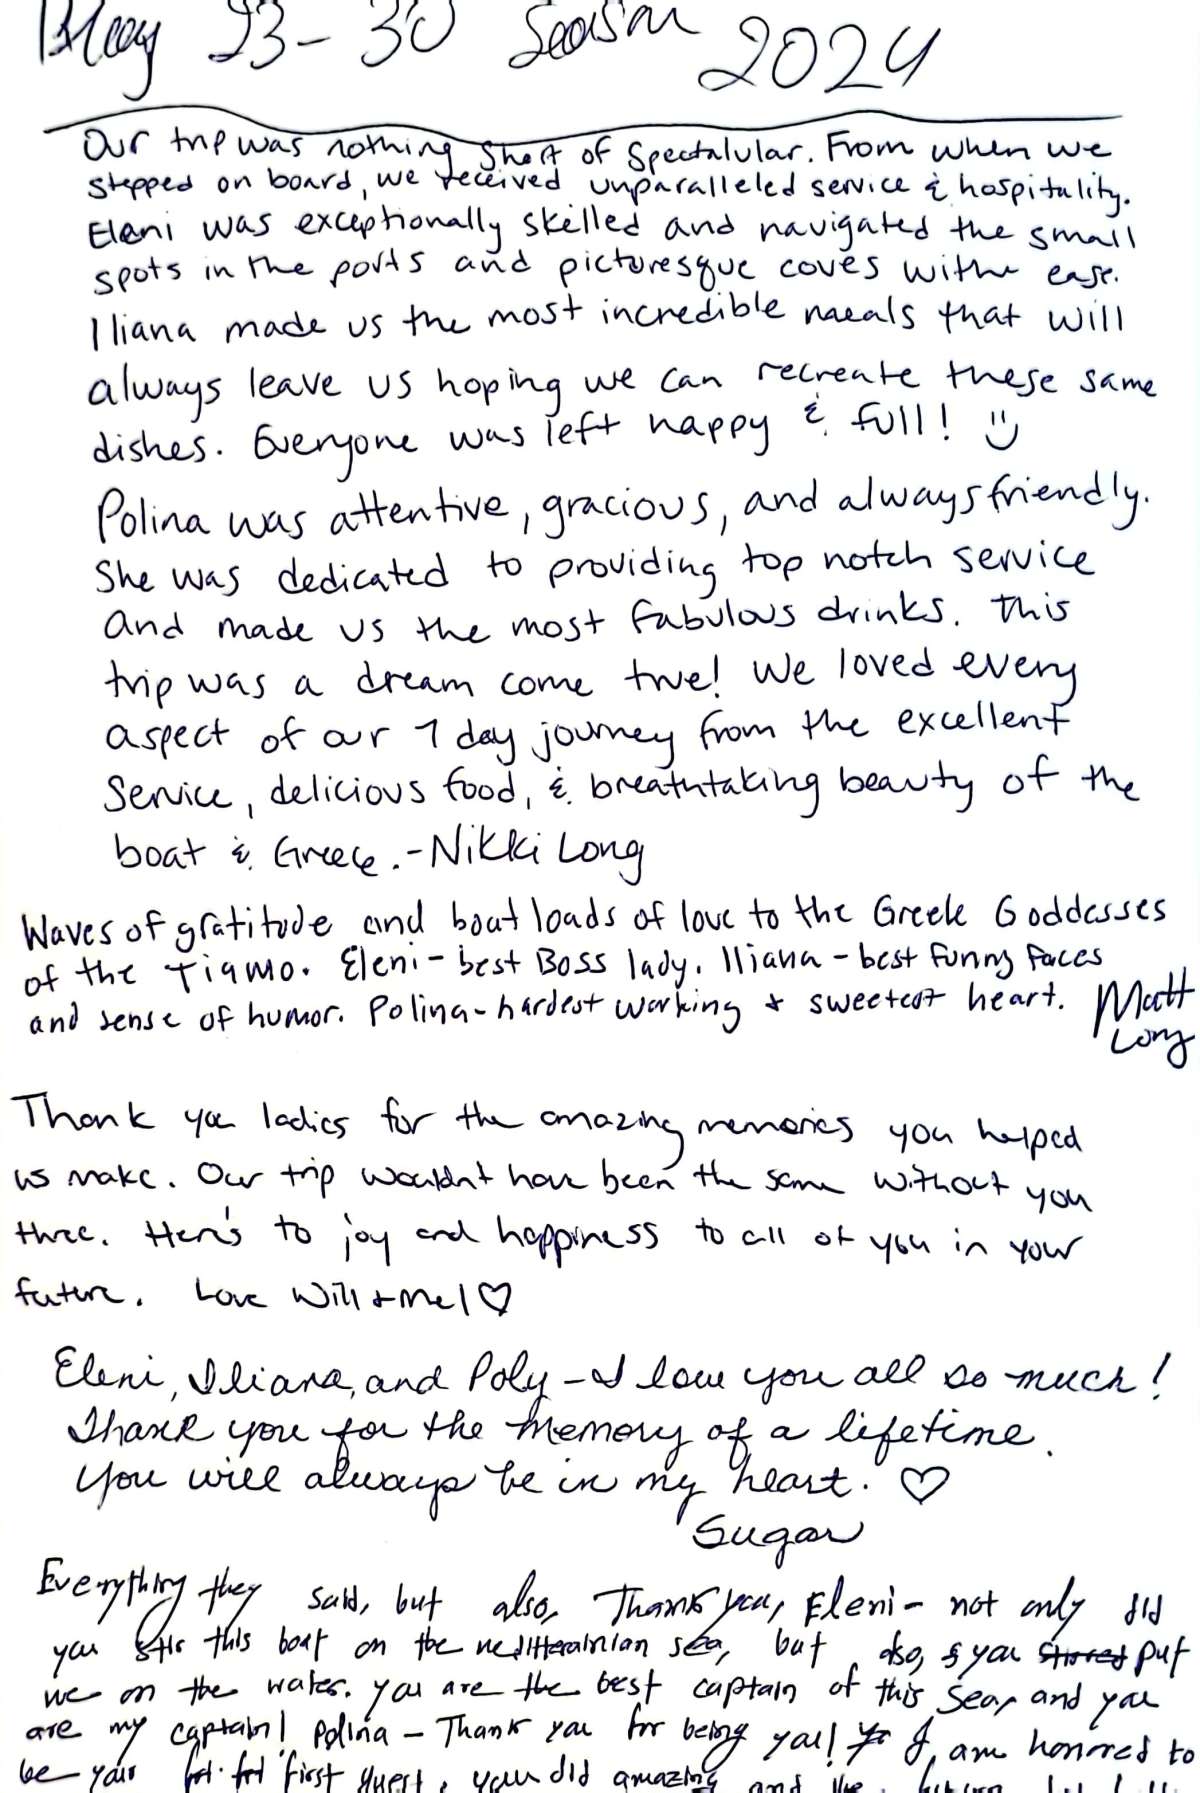 May 23-30 Season 2024
Our trip was nothing short of Spectalular. From when we
stepped on board, we received unparalleled service & hospitality.
Eleni was exceptionally skilled and navigated the small
spots in the ports and picturesque coves withe ease.
Iliana made us the most incredible meals that will
always leave us hoping we can recreate these same
dishes. Everyone was left happy & full! :)
Polina was attentive, gracious, and always friendly.
She was dedicated to providing top notch service
and made us the most fabulous drinks. This
trip was a dream come true! We loved every
aspect of our 7 day journey from the excellent
Service, delicious food, & breathtaking beauty of the
boat & Greece. - Nikki Long
Waves of gratitude and boat loads of love to the Greek Goddesses
of the Tiamo. Eleni - best Boss lady. Iliana - best funny faces
and sense of humor. Polina - hardest working & sweetest heart. Matt
Long
Thank you ladies for the amazing memories you helped
us make. Our trip wouldn't have been the same without you
three. Here's to joy and happiness to all of you in your
future. Love Will + Mel ♡
Eleni, Iliana, and Poly - I love you all so much!
Thank you for the memory of a lifetime.
You will always be in my heart. ♡
Sugar
Everything they said, but also, Thank you, Eleni - not only did
you this boat on the mediterainian sea, but also, you put
me on the water. you are the best captain of this sea, and you
are my captain! Polina - Thank you for being you! I, am honored to
be your first guest, you did amazing and the